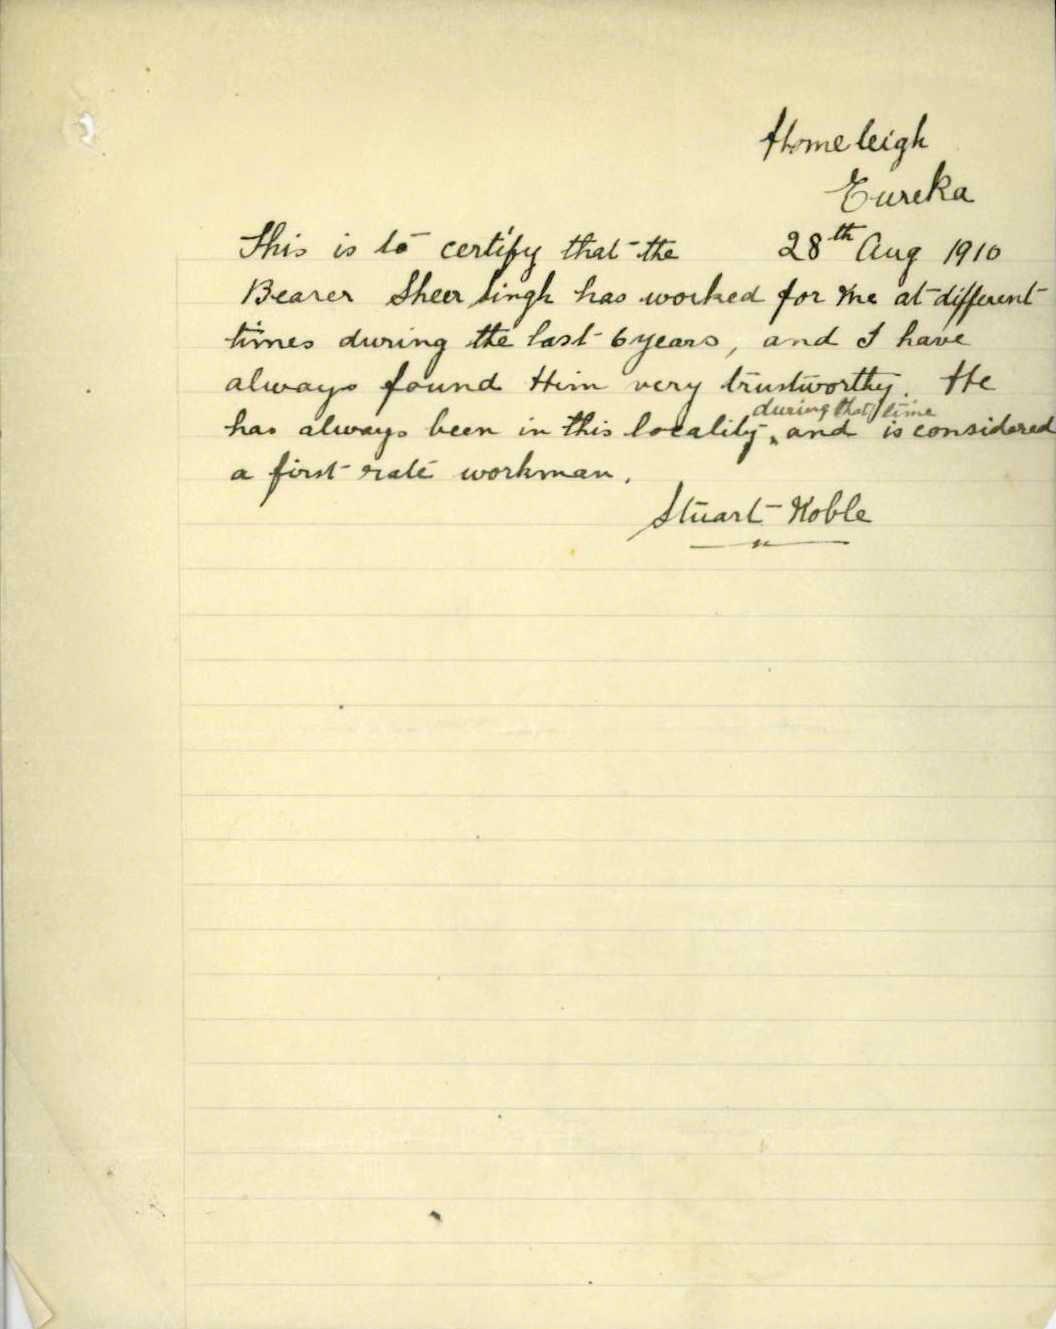 Homeleigh
Eureka
28th Aug 1910
This is to certify that the
Bearer Sheer Singh has worked for me at different
times during the last 6 years, and I have
always found Him very trustworthy. He
during that time
has always been in this locality, and is considered
a first rate workman.
Stuart Noble